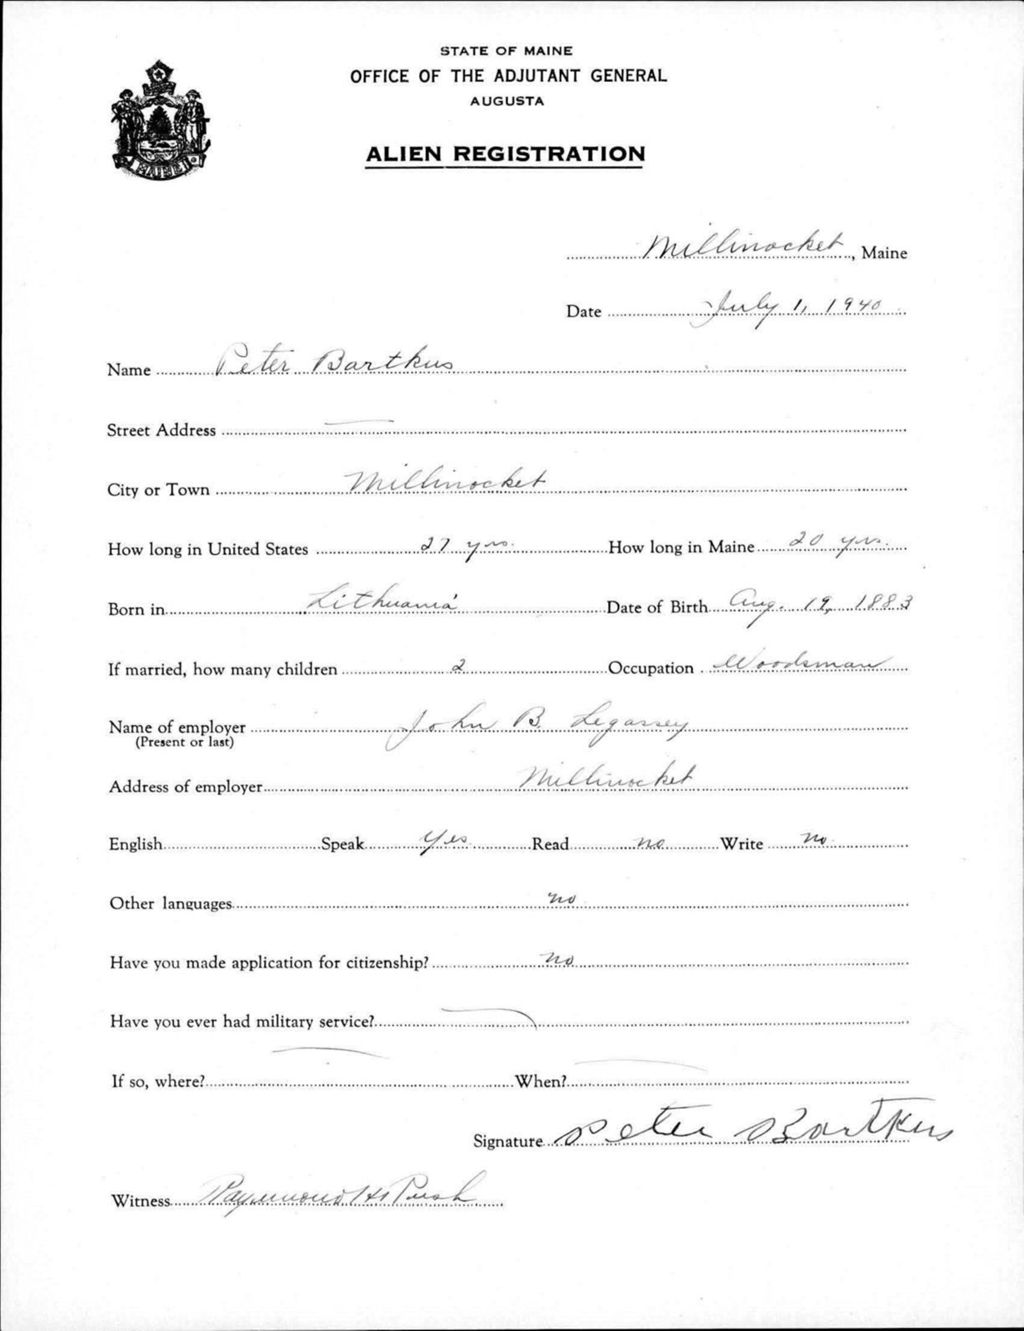 STATE OF MAINE
OFFICE OF THE ADJUTANT GENERAL
AUGUSTA
ALIEN REGISTRATION
MAINE
Millinocket, Maine
Date July 1, 1940
Name Peter Bartkus
Street Address —
City or Town Millinocket
How long in United States 27 yrs. How long in Maine 20 yrs.
Born in Lithuania Date of Birth Aug. 19, 1883
If married, how many children 2 Occupation Woodsman
Name of employer John B. Legassey
(Present or last)
Address of employer Millinocket
English Speak Yes Read no Write no
Other languages no
Have you made application for citizenship? no
Have you ever had military service? —
If so, where? — When? —
Signature Peter Bartkus
Witness Raymond H